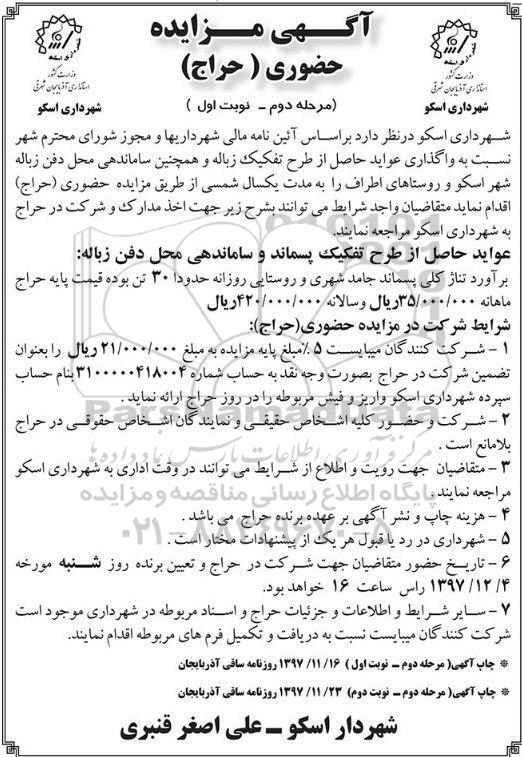 آگـهی مــزایده
حضوری ( حراج)
(مرحله دوم ـ نوبت اول )
وزارت کشور
استانداری آذربایجان شرقی
شهرداری اسکو
وزارت کشور
استانداری آذربایجان شرقی
شهرداری اسکو
شـهرداری اسکو درنظر دارد براساس آئین نامه مالی شهرداریها و مجوز شورای محترم شهر
نسبت به واگذاری عواید حاصل از طرح تفکیک زباله و همچنین ساماندهی محل دفن زباله
شهر اسکو و روستاهای اطراف را به مدت یکسال شمسی از طریق مزایده حضوری (حراج)
اقدام نماید متقاضیان واجد شرایط می توانند بشرح زیر جهت اخذ مدارک و شرکت در حراج
به شهرداری اسکو مراجعه نمایند.
عواید حاصل از طرح تفکیک پسماند و ساماندهی محل دفن زباله:
برآورد تناژ کلی پسماند جامد شهری و روستایی روزانه حدودا ۳۰ تن بوده قیمت پایه حراج
ماهانه ۳۵/۰۰۰/۰۰۰ریال وسالانه ۴۲۰/۰۰۰/۰۰۰ریال
شرایط شرکت در مزایده حضوری(حراج):
۱ - شـرکت کنندگان میبایست ۵ ٪مبلغ پایه مزایده به مبلغ ۲۱/۰۰۰/۰۰۰ ریال را بعنوان
تضمین شرکت در حراج بصورت وجه نقد به حساب شماره ۳۱۰۰۰۰۰۴۱۸۰۰۴بنام حساب
سپرده شهرداری اسکو واریز و فیش مربوطه را در روز حراج ارائه نماید .
۲ - شرکت و حضور کلیه اشخاص حقیقی و نمایندگان اشخاص حقوقی در حراج
بلامانع است .
۳ - متقاضیان جهت رویت و اطلاع از شرایط می توانند در وقت اداری به شهرداری اسکو
مراجعه نمایند .
۴ - هزینه چاپ و نشر آگهی بر عهده برنده حراج می باشد .
۵ - شهرداری در رد یا قبول هر یک از پیشنهادات مختار است .
۶ - تاریخ حضور متقاضیان جهت شرکت در حراج و تعیین برنده روز شـنبه مورخه
۱۳۹۷/۱۲/۴ راس ساعت ۱۶ خواهد بود.
۷ - سـایر شـرایط و اطلاعات و جزئیات حراج و اسناد مربوطه در شهرداری موجود است
شرکت کنندگان میبایست نسبت به دریافت و تکمیل فرم های مربوطه اقدام نمایند.
* چاپ آگهی( مرحله دوم ـ نوبت اول ) ۱۳۹۷/۱۱/۱۶ روزنامه ساقی آذربایجان
* چاپ آگهی( مرحله دوم ـ نوبت دوم) ۱۳۹۷/۱۱/۲۳ روزنامه ساقی آذربایجان
شهردار اسکو ـ علی اصغر قنبری
ParsNamadData
مرکز فن آوری اطلاعات پارس نماد داده ها
پایگاه اطلاع رسانی مناقصه و مزایده
۰۲۱-۸۸۳۴۹۶۷۰-۵